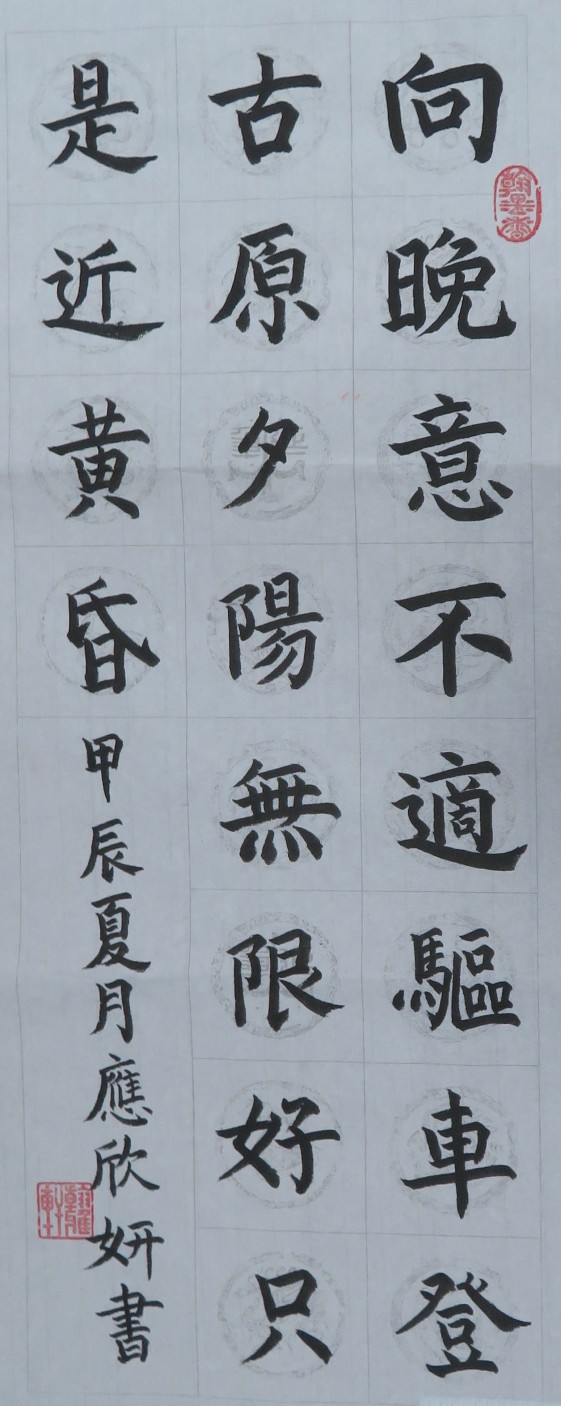 向晚意不適驅車登
古原夕陽無限好只
是近黃昏
甲辰夏月應欣妍書
翰墨香